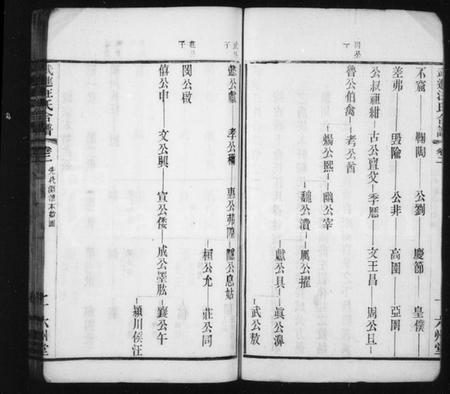 不窋 鞠陶 公劉 慶節 皇僕
差弗 毀隃 公非 高圉 亞圉
公叔祖紺 古公亶父 季歷 文王昌 周公旦
魯公伯禽 考公酋
煬公熙 幽公宰
魏公潰 厲公擢
獻公具 眞公濞
武公敖
武公子
懿公戲 孝公稱 惠公弗 隱公息姑
桓公允 莊公同
莊公子
閔公啟
僖公申 文公興 宣公倭 成公黑肱 襄公午
潁川侯汪
武進汪氏合譜 卷一 先代淵源本 圖 六州堂